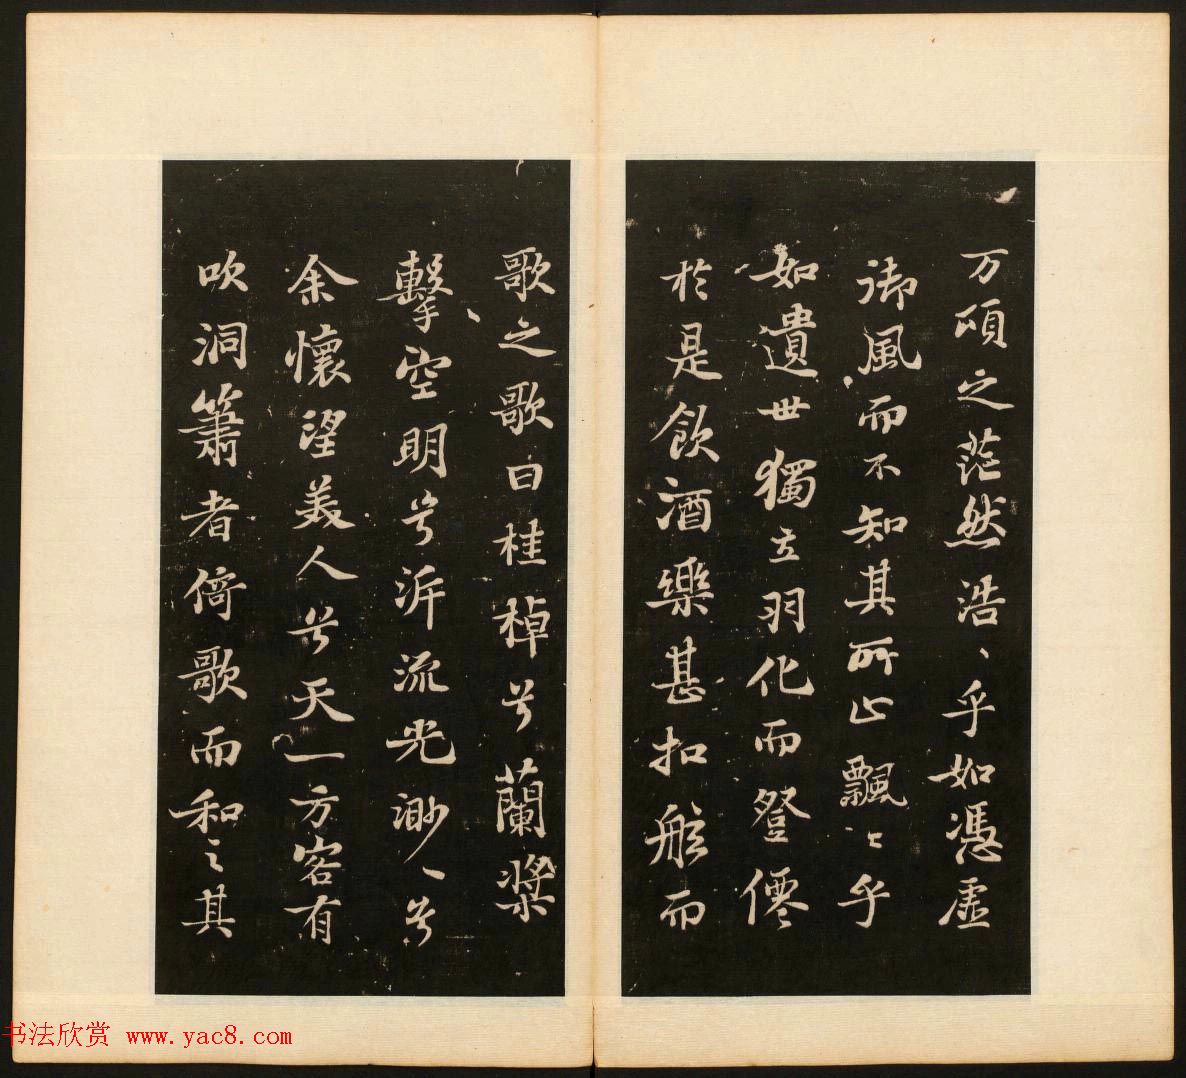 万頃之茫然浩〻乎如馮虛
御風而不知其所止飄〻乎
如遺世獨立羽化而登僊
於是飲酒樂甚扣舷而
歌之歌曰桂棹兮蘭槳
擊空明兮泝流光渺〻兮
余懷望美人兮天一方客有
吹洞簫者倚歌而和之其
书法欣赏 www.yac8.com